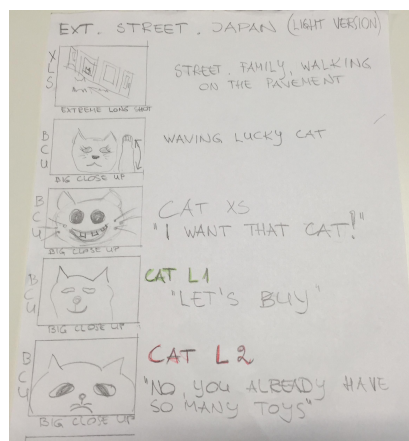 EXT. STREET. JAPAN (LIGHT VERSION)
XLS
EXTREME LONG SHOT
STREET. FAMILY, WALKING
ON THE PAVEMENT
BCU
BIG CLOSE UP
WAVING LUCKY CAT
BCU
BIG CLOSE UP
CAT XS
"I WANT THAT CAT!"
BCU
BIG CLOSE UP
CAT L1
"LET'S BUY"
BCU
BIG CLOSE UP
CAT L2
"NO, YOU ALREADY HAVE
SO MANY TOYS"